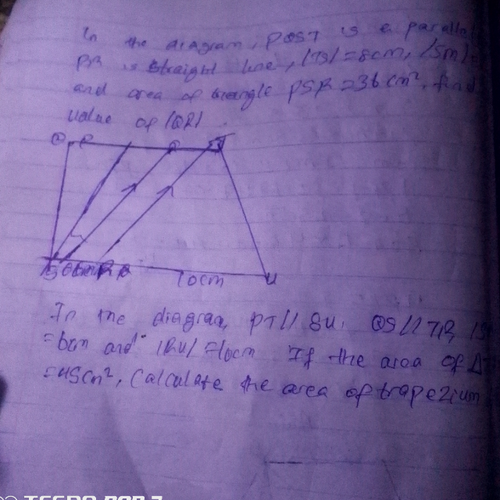 In the diagram, PQST is a paralle
PR is straight line, |TS| = 8cm, |SM| =
and area of triangle PSR = 36cm², find
value of |QR|
P
S
6cm R
10cm
U
In the diagram, PT// SU, QS//TR, |S
= 6cm and |RU| = 10cm If the area of Δ
= 45cm², Calculate the area of trapezium